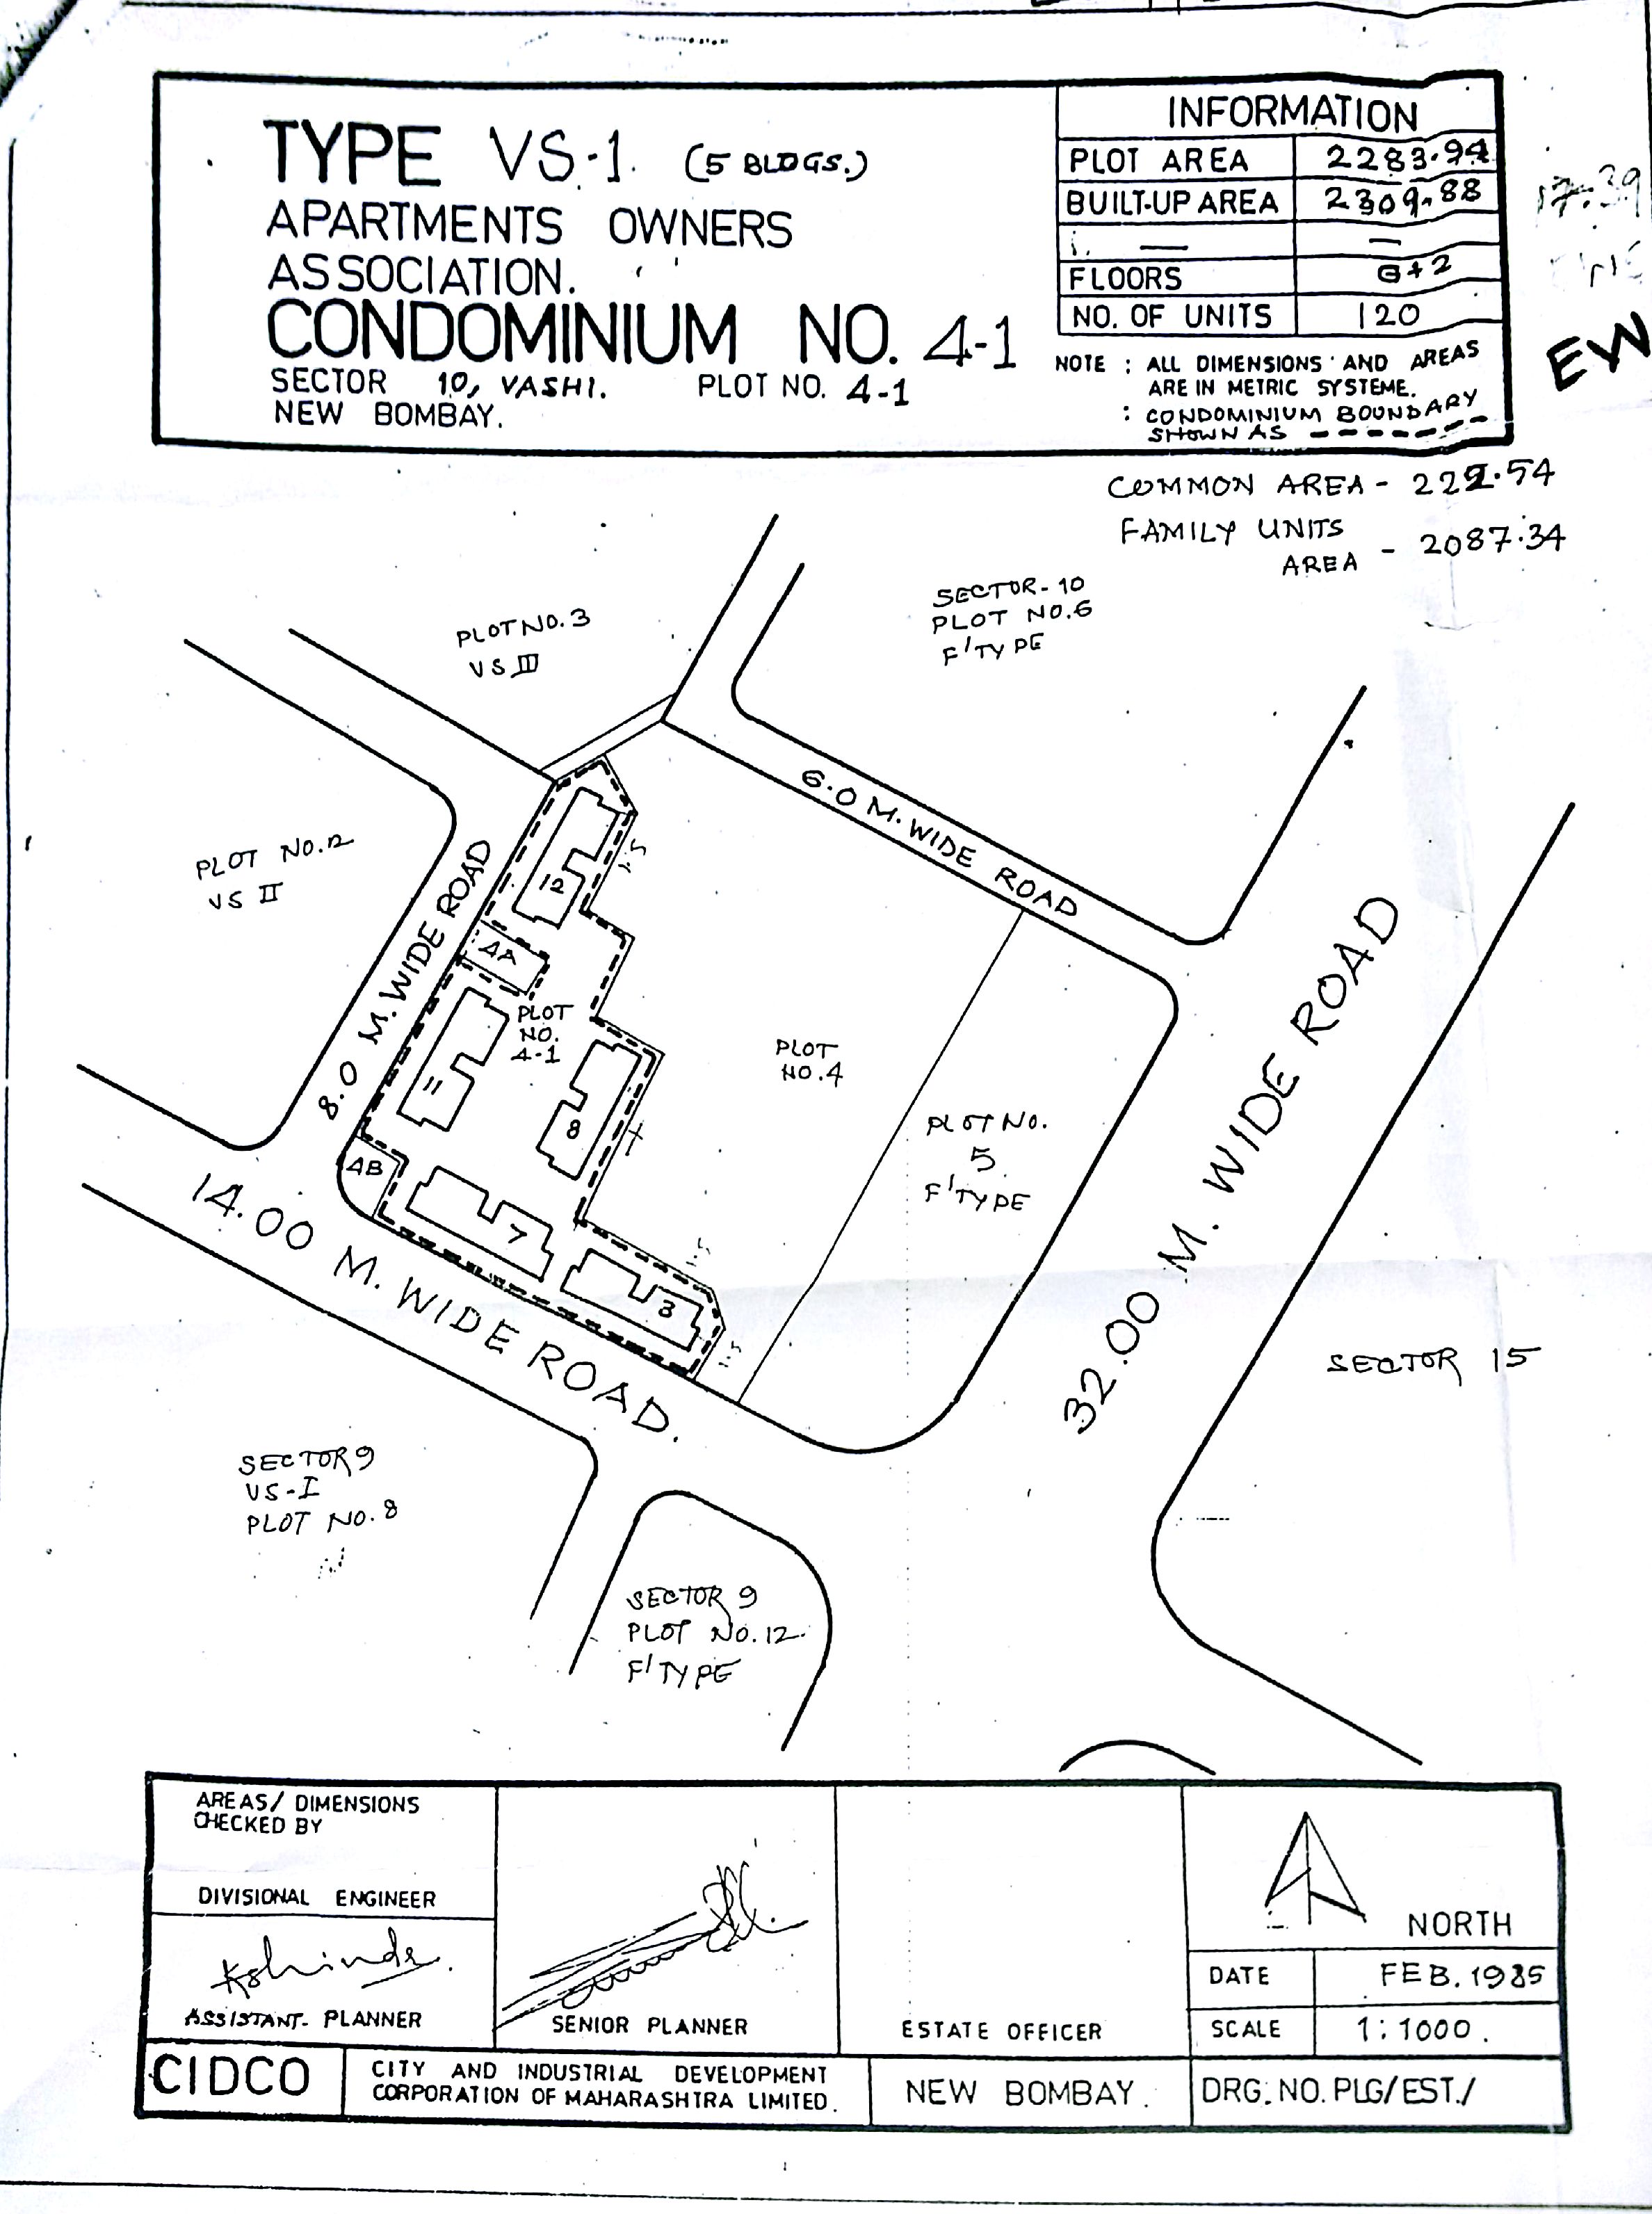 TYPE VS-1. (5 BLDGS.)
APARTMENTS OWNERS
ASSOCIATION.
CONDOMINIUM NO. 4-1
SECTOR 10, VASHI. PLOT NO. 4-1
NEW BOMBAY.
INFORMATION
PLOT AREA 2283.94
BUILT-UP AREA 2309.88
FLOORS G+2
NO. OF UNITS 120
NOTE : ALL DIMENSIONS AND AREAS
ARE IN METRIC SYSTEME.
: CONDOMINIUM BOUNDARY
SHOWN AS
COMMON AREA - 222.54
FAMILY UNITS
AREA - 2087.34
SECTOR-10
PLOT NO.6
F'TYPE
PLOT NO.3
VS III
6.0 M. WIDE ROAD
PLOT NO.2
VS II
8.0 M. WIDE ROAD
12
1.5
4A
PLOT
NO.
4-1
11
8
PLOT
NO.4
PLOT NO.
5
F'TYPE
32.00 M. WIDE ROAD
4B
7
3
1.5
1.5
14.00 M. WIDE ROAD.
SECTOR 15
SECTOR 9
VS-I
PLOT NO. 8
SECTOR 9
PLOT NO.12.
F'TYPE
AREAS/ DIMENSIONS
CHECKED BY
DIVISIONAL ENGINEER
ASSISTANT- PLANNER
SENIOR PLANNER
ESTATE OFFICER
NORTH
DATE FEB. 1985
SCALE 1:1000.
CIDCO
CITY AND INDUSTRIAL DEVELOPMENT
CORPORATION OF MAHARASHTRA LIMITED.
NEW BOMBAY.
DRG. NO. PLG/EST./